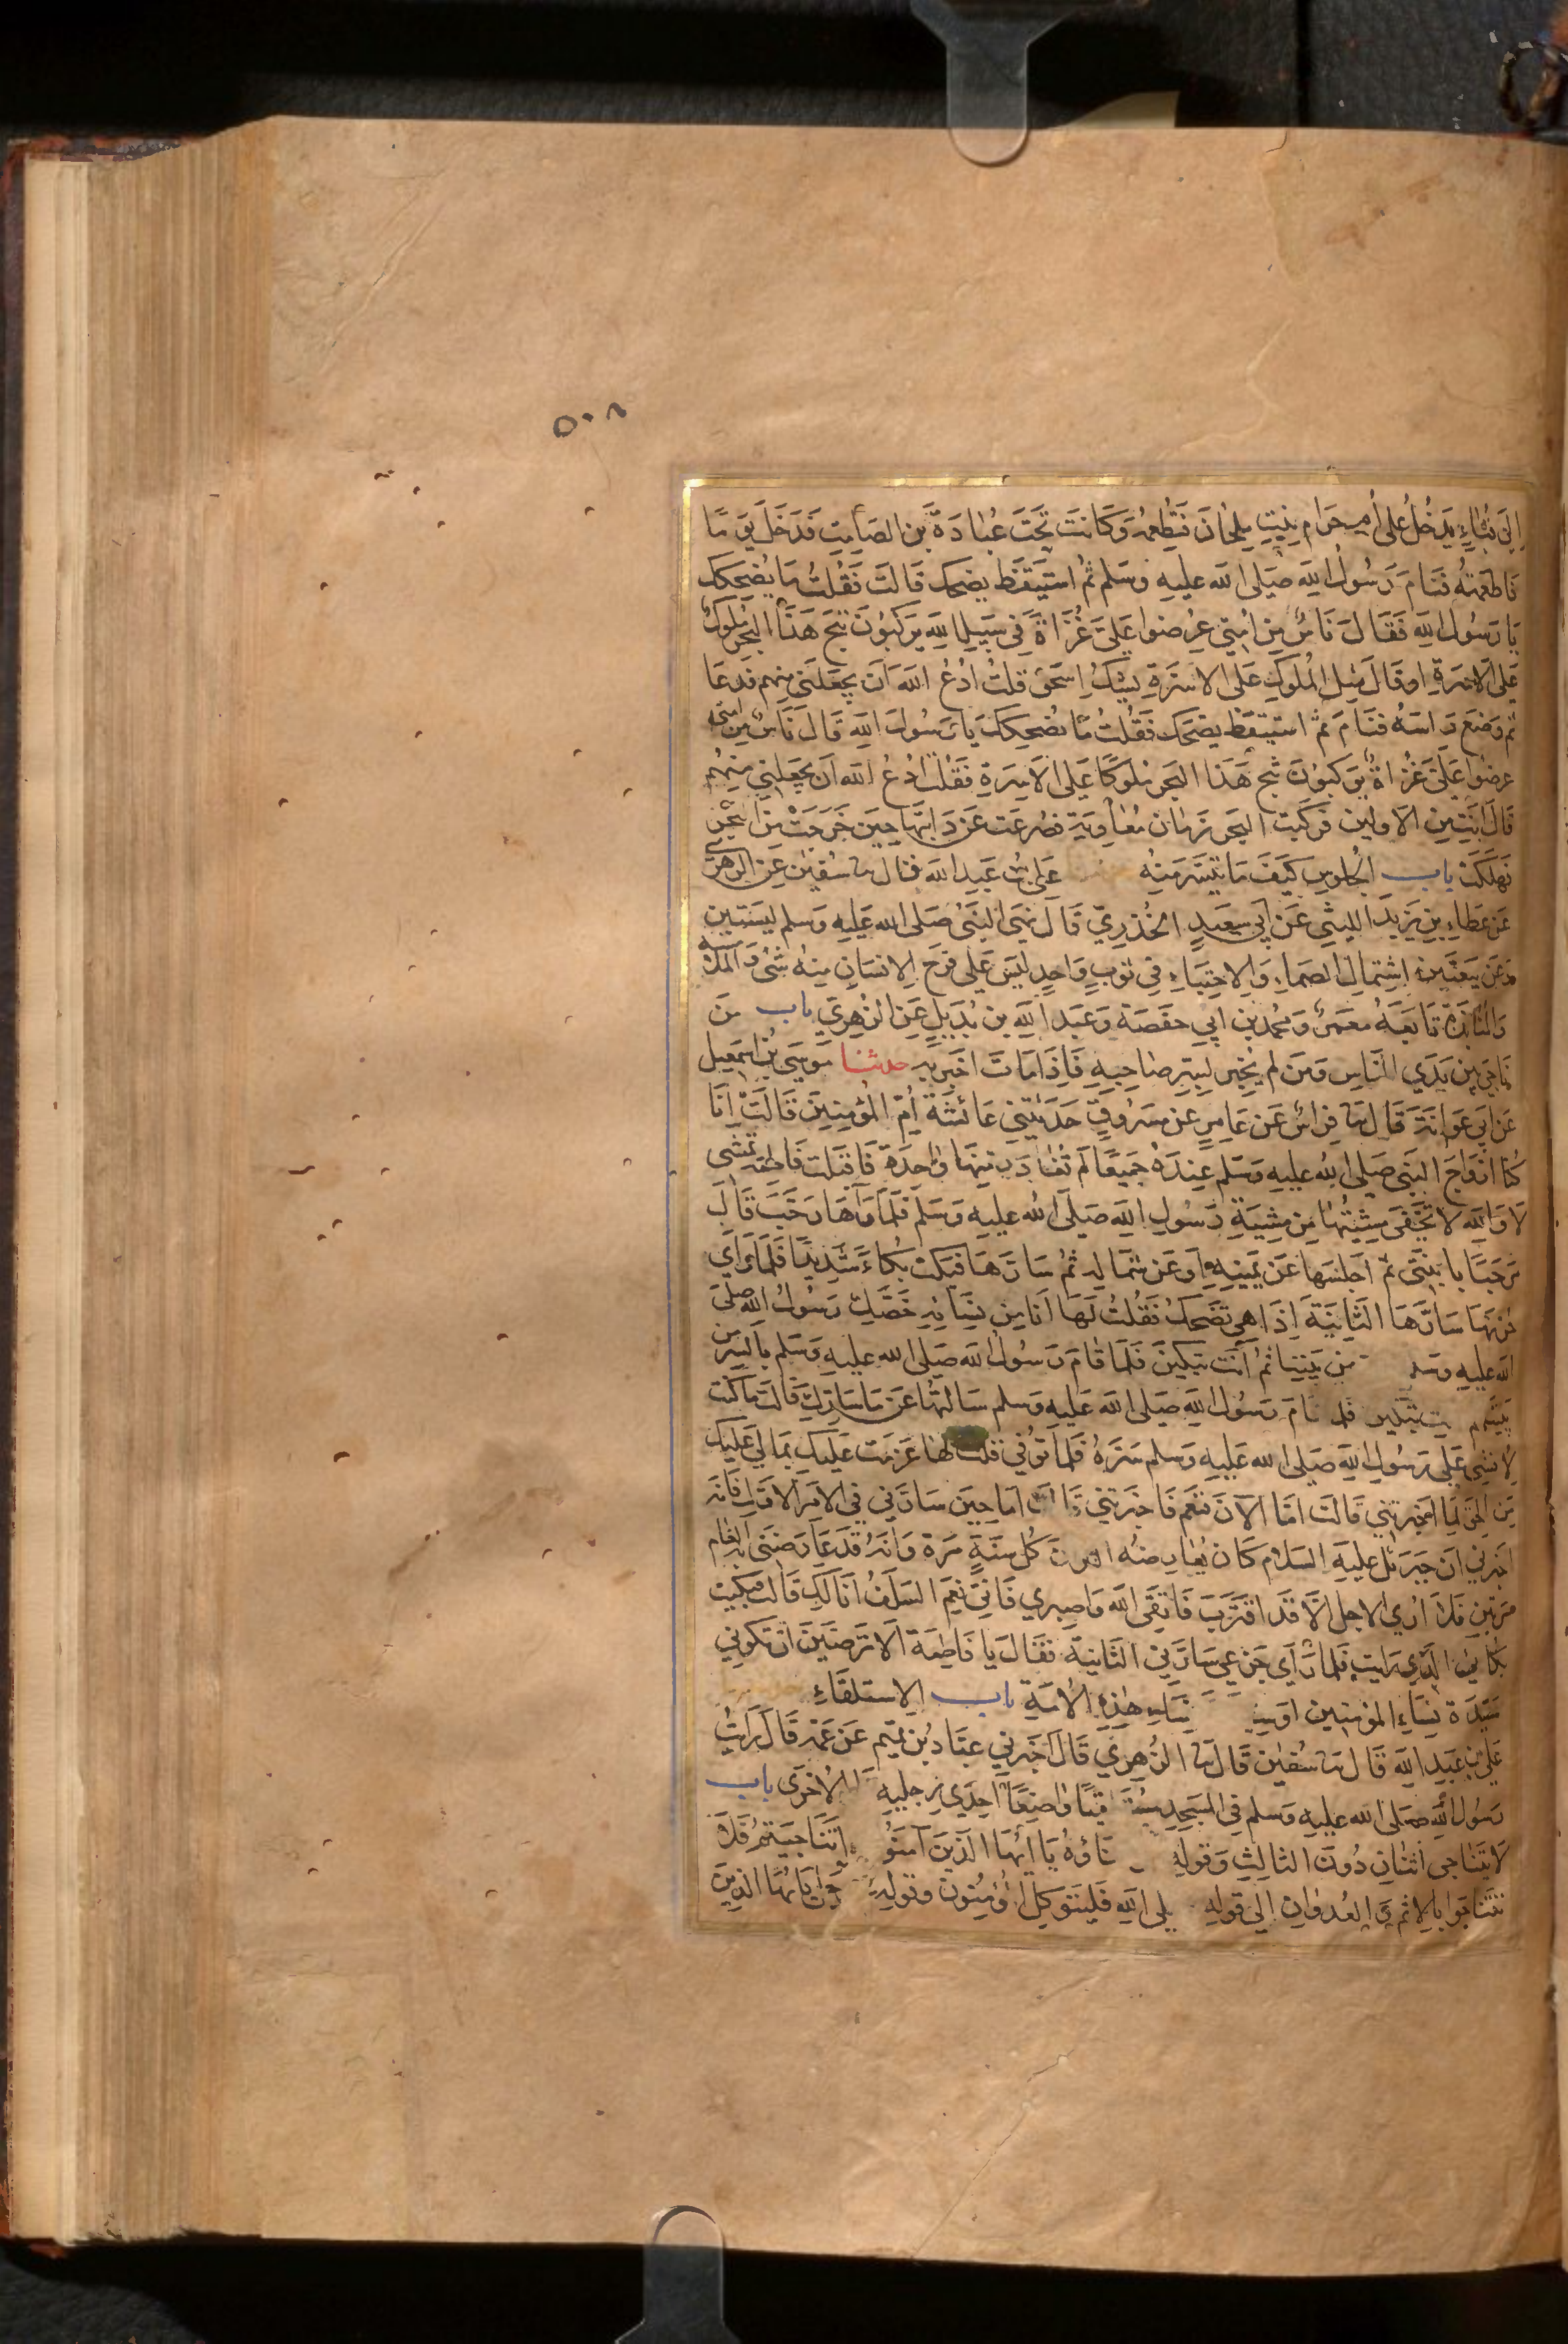 ٥٠٨
إِلَى قُبَاءٍ يَدْخُلُ عَلَى أُمِّ حَرَامٍ بِنْتِ مِلْحَانَ فَتُطْعِمُهُ وَكَانَتْ تَحْتَ عُبَادَةَ بْنِ الصَّامِتِ فَدَخَلَ يَوْمًا
فَأَطْعَمَتْهُ فَنَامَ رَسُولُ اللهِ صَلَّى الله عليه وسلم ثُمَّ اسْتَيْقَظَ يضحك قَالَتْ فَقُلْتُ مَا يُضْحِكُكَ
يَا رَسُولَ اللهِ فَقَالَ نَاسٌ مِنْ أُمَّتِي عُرِضُوا عَلَيَّ غُزَاةً فِي سَبِيلِ اللهِ يَرْكَبُونَ ثَبَجَ هَذَا البَحْرِ مُلُوكًا
عَلَى الأَسِرَّةِ اوقَالَ مِثْلَ المُلُوكِ عَلَى الاسِرَّةِ يَشُكُّ إِسْحَقُ قلتُ ادْعُ اللهَ أَنْ يَجْعَلَنِي منهم فَدَعَا
ثم وَضَعَ رَاسَهُ فَنَامَ ثم اسْتَيْقَظَ يضحَك فَقُلْتُ مَا يُضْحِكُكَ يَا رَسُولَ اللهِ قَالَ نَاسٌ مِنْ امتي
عرضُوا عَلَيَّ غُزَاةً يَرْكَبُونَ ثَبَجَ هَذَا البَحر مُلُوكًا عَلَى الأَسِرَةِ فَقُلْتُ ادْعُ اللهَ أَنْ يَجعَلَنِي مِنْهُمْ
قَالَ أَنْتِ مِنَ الأَوَّلِينَ فَرَكِبَت البَحرَ زَمَانَ مُعَاوِيَةَ فصُرِعَت عَنْ دَابَّتِهَا حِينَ خَرَجَتْ مِنَ البَحْرِ
فَهَلَكَتْ باب الجُلُوسِ كَيْفَ مَا تَيَسَّرَ مِنْهُ عَلي بن عَبدِ الله قال نا سُفيٰن عَنِ الزهري
عَنْ عَطَاءِ بنِ يَزِيدَ الليثي عَنْ أَبِي سعيدٍ الخُدْرِيّ قَالَ نَهَى النَّبيُّ صَلى الله عَلَيهِ وَسلم لبستين
وَعَنْ بَيْعَتَيْنِ اشْتِمَالِ الصَّمَاءِ وَالاحْتِبَاءِ فِي ثَوْبٍ وَاحِدٍ لَيْسَ عَلَى فَرْجِ الانسَانِ مِنهُ شَيْءٌ وَالمُلَامَسَةِ
وَالمُنَابَذَةِ تَابَعَهُ مَعمَرٌ وَمحمد بن أبي حفصَةَ وَعَبْد الله بن بُدَيْلٍ عَنِ الزُهرِيّ باب مَنْ
نَاجَى بَيْنَ يَدَيِ النَّاسِ وَمَنْ لَم يُخْبِر بِسِرِّ صَاحِبِهِ فَإِذَا مَاتَ اخبَرَ بِهِ حدثنا مُوسَى بْنُ اسمعِيل
عَنْ أَبِي عَوَانَةَ قَالَ نا فِرَاسٌ عَن عَامِرٍ عن مسروقٍ حَدَّثَتْنِي عَائشَةُ أُمُّ المُؤْمِنِينَ قَالَتْ إِنَّا
كُنَّا ازْوَاجَ النَّبِي صَلى الله عليه وسلم عِندَهُ جَمِيعًا لَم تُغَادَرْ مِنَّا وَاحِدَةٌ فَأَقبَلَت فَاطِمَة تَمْشِي
لَا وَاللهِ لا تَخْفَى مِشْيَتُهَا مِنْ مِشْيَةِ رَسُولِ اللهِ صَلى الله عليه وَسَلم فَلَمَّا رَآهَا رَحَّبَ قَالَ
مَرْحَبًا بابْنَتِي ثُمَّ أَجْلَسَهَا عَنْ يَمِينِهِ أَوْ عَنْ شمَالِهِ ثُمَّ سَارَّهَا فَبَكَتْ بُكَاءً شَدِيدًا فَلَمَّا رَأَى
حُزْنَهَا سَارَّهَا الثَّانِيَةَ إِذَا هِيَ تَضْحَكُ فَقُلْتُ لَهَا أَنَا مِنْ نِسَائِهِ خَصَّكِ رَسُولُ اللهِ صلى
الله عَلَيهِ وَسلم مِنْ بَيْنِنَا ثُمَّ أَنْتِ تَبْكِينَ فَلَمَّا قَامَ رَسُولُ اللهِ صَلى الله عَليهِ وَسلم بِالسر من
بيننا ثم تبكين فلما قام رَسُولُ اللهِ صَلى الله عَلَيهِ وَسلم سَأَلْتُهَا عَنْ مَا سَارَّكِ قَالَتْ مَا كُنت
لِأُفْشِيَ عَلَى رَسُولِ اللهِ صَلى الله عَلَيهِ وَسلم سِرَّهُ فَلَمَّا تُوُفِّيَ قلت لهَا عَزَمتُ عَلَيكِ بِمَا لِي عَلَيكِ
مِنَ الحَقِّ لَمَا أخبرتِنِي قَالَتْ امَّا الآنَ فَنَعَم فَأَخبَرَتْنِي قَالَت امَّا حِينَ سَارَّنِي فِي الأَمْرِ الأَوَّلِ فَإِنَّه
اخبَرَنِي أَنَّ جِبرَئل عَلَيهِ السَّلَام كَانَ يُعَارِضُهُ القرآن كُلَّ سَنَةٍ مَرةً وَإِنَّهُ قَدْ عَارَضَنِي بِهِ العَامَ
مَرَّتَيْنِ فَلَا أرَى الاجل إِلَّا قَد اقْتَرَبَ فَاتَّقِي اللهَ وَاصْبِرِي فَإِنِّي نِعْمَ السَّلَفُ أَنَا لَكِ قَالَت فَبَكَيتُ
بُكَائِي الَّذِي رَأَيتِ فَلَمَّا رَأَى جَزَعِي سَارَّنِي الثَّانِيَةَ فَقَالَ يَا فَاطِمَةُ أَلَا تَرْضَيْنَ أَنْ تَكُونِي
سَيِّدَة نِسَاءِ المؤمنِين اوسيدة نِسَاءِ هٰذِهِ الأُمَّةِ باب الاستلقَاءِ
عَلي بن عَبدِ الله قَالَ نا سُفيٰن قَالَ نا الزُهرِيّ قَالَ أَخبَرَنِي عَبَّادُ بْن تَمِيم عَن عَمِّه قَالَ رَأَيتُ
رَسُولَ اللهِ صَلى الله عليه وسلم فِي المَسجِدِ مُسْتَلْقِيًا وَاضِعًا إِحْدَى رِجلَيهِ عَلَى الأُخْرَى باب
لَا يَتَنَاجَى اثْنَانِ دُونَ الثالِثِ وَقَولِهِ تَعَالَى يَا أَيُّهَا الَّذِينَ آمَنُوا إِذَا تَنَاجَيتُمْ فَلَا
تَتَنَاجَوا بِالإِثمِ وَالعُدوَانِ إِلَى قَولِهِ وَعَلَى اللهِ فَليَتَوَكَّلِ المُؤْمِنُونَ وَقَولِهِ يَا أَيُّهَا الَّذِينَ